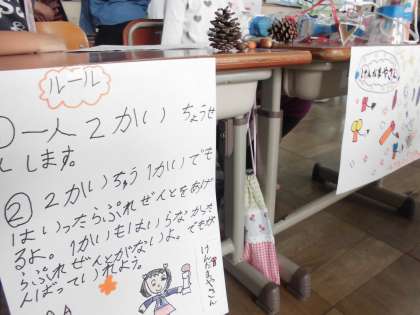 ルール
①一人2かいちょうせ
んします。
②2かいちゅう1かいでも
はいったらぷれぜんとをあげ
るよ。1かいもはいらなかった
らぷれぜんとがないよ。でもが
んばっていれよう。
けんだまやさん
けんだまやさん